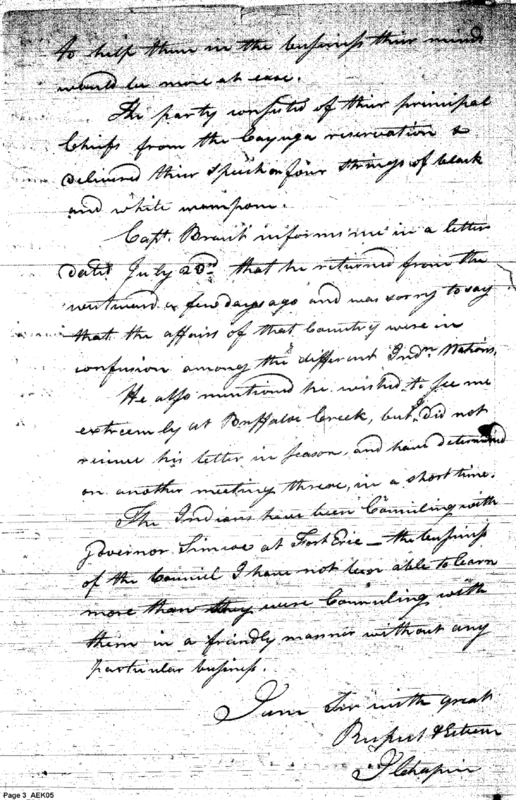 to help them in the business their minds
would be more at ease.
The party consisted of thier principal
Chiefs from the Cayuga reservation &
delivered thier speech on four strings of black
and white wampom.
Capt. Brant informs me in a letter
dated July 23d that he returned from the
westward a few days ago and was sorry to say
that the affairs of that Country were in
confusion among the different Indn Nations.
He also mentioned he wished to see me
extreemly at Buffaloe Creek, but I did not
receive his letter in season, and have determined
on another meeting there, in a short time.
The Indians have been Counciling with
governor Simcoe at Fort Erie — the business
of the Council I have not been able to learn
more than they were Counciling with
them in a friendly manner without any
particular business.
I am Sir with great
Respect & Esteem
I Chapin
Page 3 AEK05